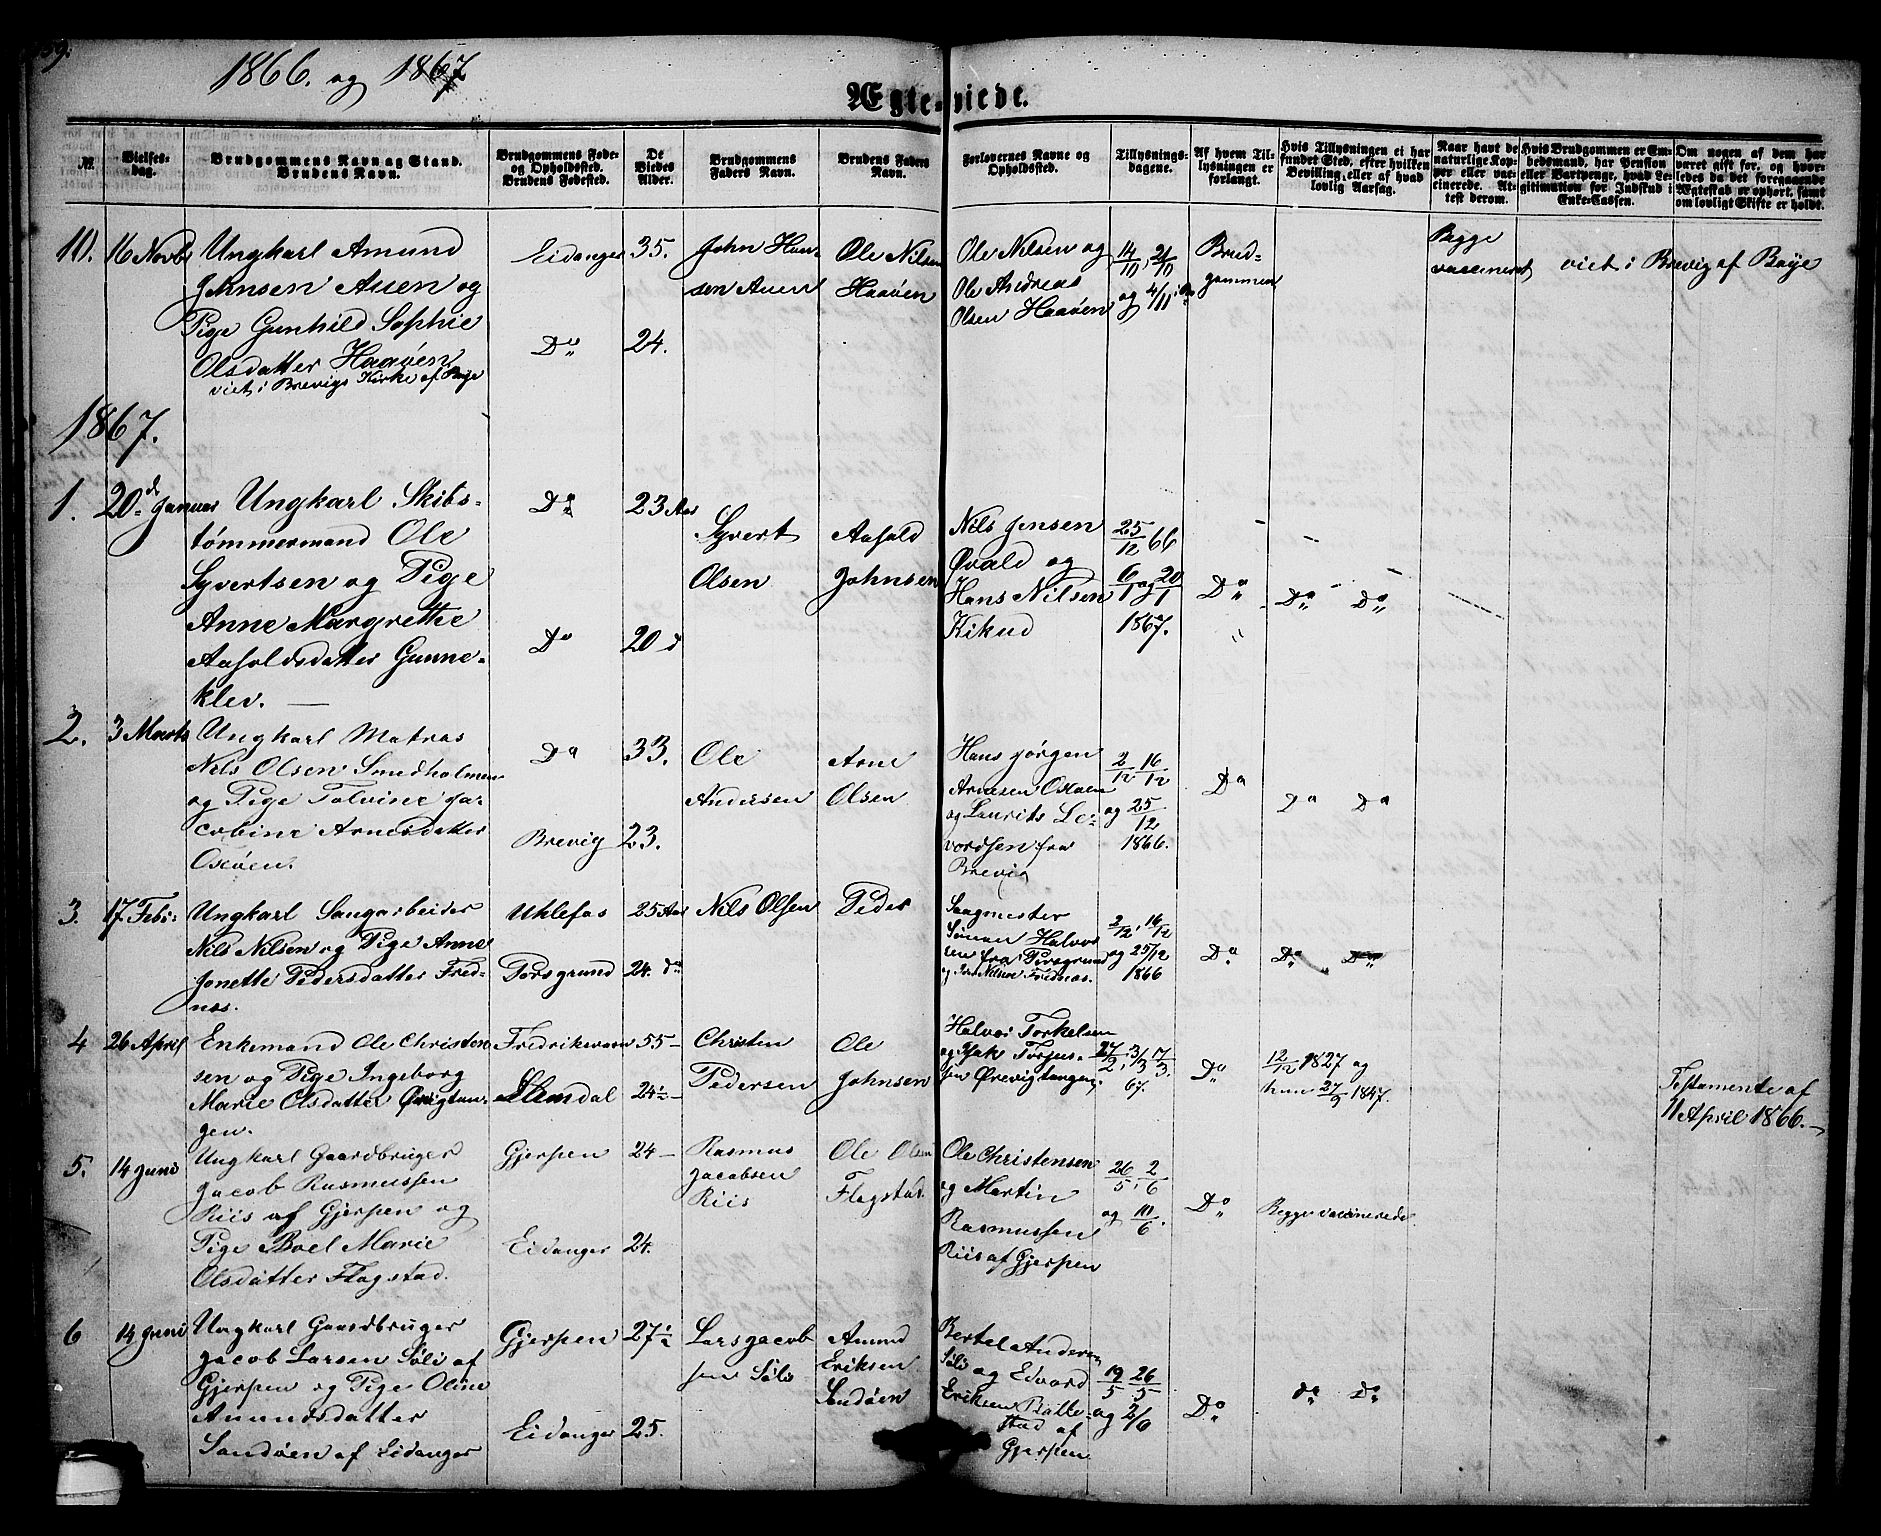 1866. og 1867
Ægteviede.
N.
Vielses-
dag.
Brudgommens Navn og Stand.
Brudens Navn.
Brudgommens Føde-
og Opholdssted.
Brudens Fødested.
De
Viedes
Alder.
Brudgommens
Faders Navn.
Brudens Faders
Navn.
Forlovernes Navne og
Opholdssted.
Tillysnings-
dagene.
Af hvem Til-
lysningen er
forlangt.
Hvis Tillysningen ei har
fundet Sted, efter hvilken
Bevilling, eller af hvad
lovlig Aarsag.
Naar havt de
naturlige Kop-
per eller vac-
cinerede. At-
test derom.
Hvis Brudgommen er Em-
bedsmand, har Pension
eller Vartpenge, hvad Le-
gitimation for Indskud i
Enke-Cassen.
Om nogen af dem har
været gift før, og hvor-
ledes da det foregaaende
Ægteskab er ophørt, samt
om lovligt Skifte er holdt.
10. 16 Novb
Ungkarl Amund
Johnsen Auen og
Pige Gunhild Sophie
Olsdatter Haaøen
viet i Brevigs Kirke af Boye
Eidanger 35.
Do 24.
John Han-
sen Auen
Ole Nilsen
Haaøen
Ole Nilsen og
Ole Andreas
Olsen Haaøen
14/10, 21/10
og 4/11
Brud-
gommen
Begge
vaccineret
viet i Brevig af Boye
1867.
1. 20de Januar
Ungkarl Skibs-
tømmermand Ole
Syvertsen og Pige
Anne Margrethe
Aasoldsdatter Gunne-
klev.
Do 23 Aar
Do 20 d
Syvert
Olsen
Aasold
Johnsen
Nils Jensen
Øvald og
Hans Nilsen
Kikud
25/12 66
6/1 og 20/1
1867.
Do Do Do
2. 3 Marts
Ungkarl Matros
Nils Olsen Smedholmen
og Pige Tolvine Ja-
cobine Arnesdatter
Oxøen.
Do 33.
Brevig 23.
Ole
Andersen
Arne
Olsen
Hans Jørgen
Arnesen Oxøen
og Laurits Le-
vordsen fra
Brevig
2/12 16/12
og 25/12
1866.
Do Do Do
3. 17 Febr:
Ungkarl Saugarbeider
Nils Nilsen og Pige Anne
Jonette Pedersdatter Fred-
nes.
Uhlefos 25 Aar
Porsgrund 24. do
Nils Olsen
Peder
Saugmester
Simon Halvor
sen fra Porsgrund
og Nilsen Frednes.
2/12, 16/12
og 25/12
1866
Do Do Do
4 26 April
Enkemand Ole Christen
sen og Pige Ingeborg
Marie Olsdatter Øvrigtan-
gen.
Fredriksværn 55-
Slemdal 24½-
Christen
Pedersen
Ole
Johnsen
Halvor Torkelsen
og Isak Torjus-
sen Ørevigtangen,
27/2, 3/3 17/3.
67.
Do
12/12 1827 og
hun 27/9 1847.
Testamente af
11 April 1866.
5. 14 Juni
Ungkarl Gaardbruger
Jacob Rasmussen
Riis af Gjerpen og
Pige Boel Marie
Olsdatter Flagstad.
Gjerpen 24-
Eidanger 24.
Rasmus
Jacobsen
Riis
Ole Olsen
Flagstad.
Ole Christensen
og Martin
Rasmussen
Riis af Gjerpen
26/5, 2/6
og 10/6
Do
Begge vaccinerede
6 14 Juni
Ungkarl Gaardbruger
Jacob Larsen Søli af
Gjerpen og Pige Oline
Amundsdatter
Sandøen af Eidanger
Gjerpen 27½
Eidanger 25.
Lars Jacob
sen Søli
Amund
Eriksen
Sandøen
Bertel Andersen
Søli og Edvard
Eriksen Balle-
stad af
Gjerpen
19/5 26/5
og 2/6
Do do Do